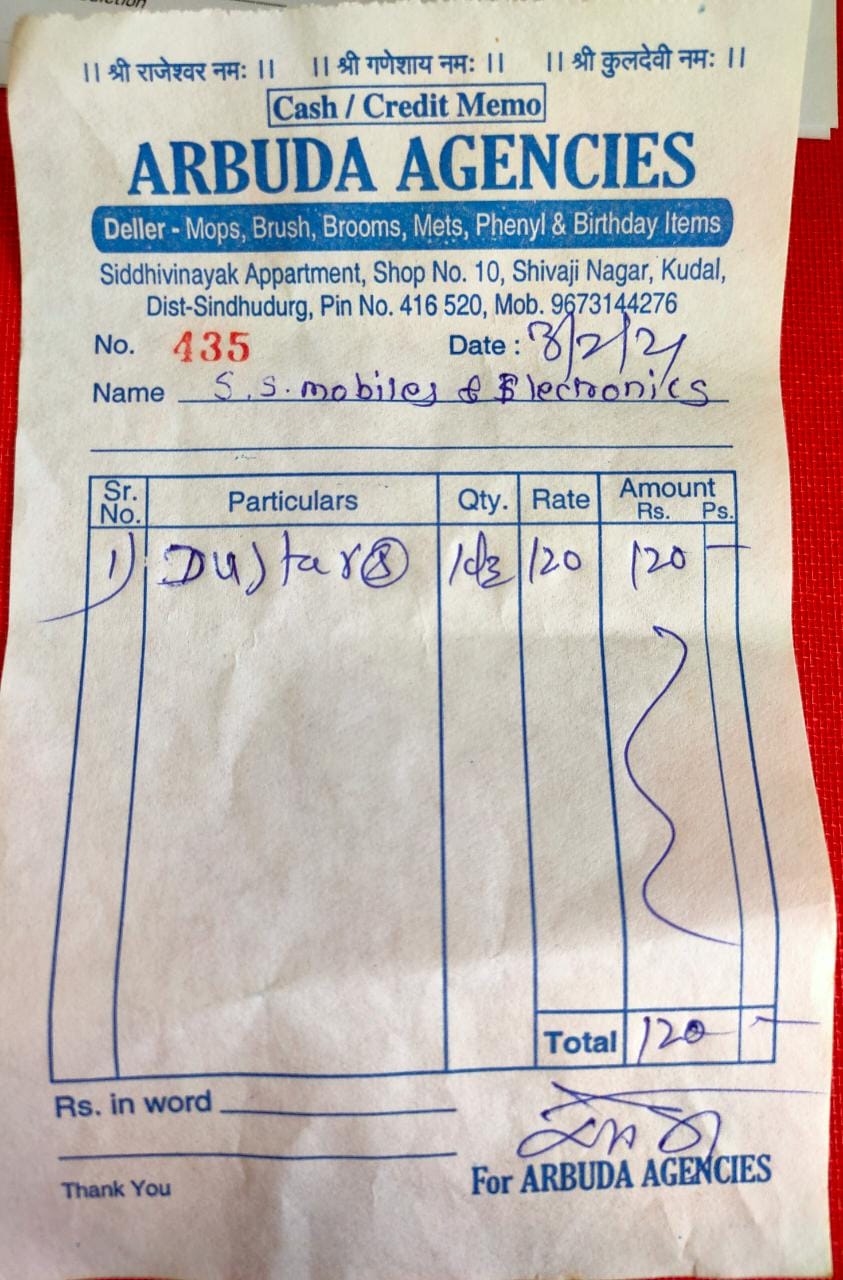 ।। श्री राजेश्वर नमः ।। ।। श्री गणेशाय नमः ।। ।। श्री कुलदेवी नमः ।।
Cash / Credit Memo
ARBUDA AGENCIES
Deller - Mops, Brush, Brooms, Mets, Phenyl & Birthday Items
Siddhivinayak Appartment, Shop No. 10, Shivaji Nagar, Kudal,
Dist-Sindhudurg, Pin No. 416 520, Mob. 9673144276
No. 435 Date : 3/2/21
Name S.S. mobiles & Electronics
Sr. No. Particulars Qty. Rate Amount Rs. Ps.
1) Dustar 1dz 120 120 —
Total 120 —
Rs. in word
For ARBUDA AGENCIES
Thank You